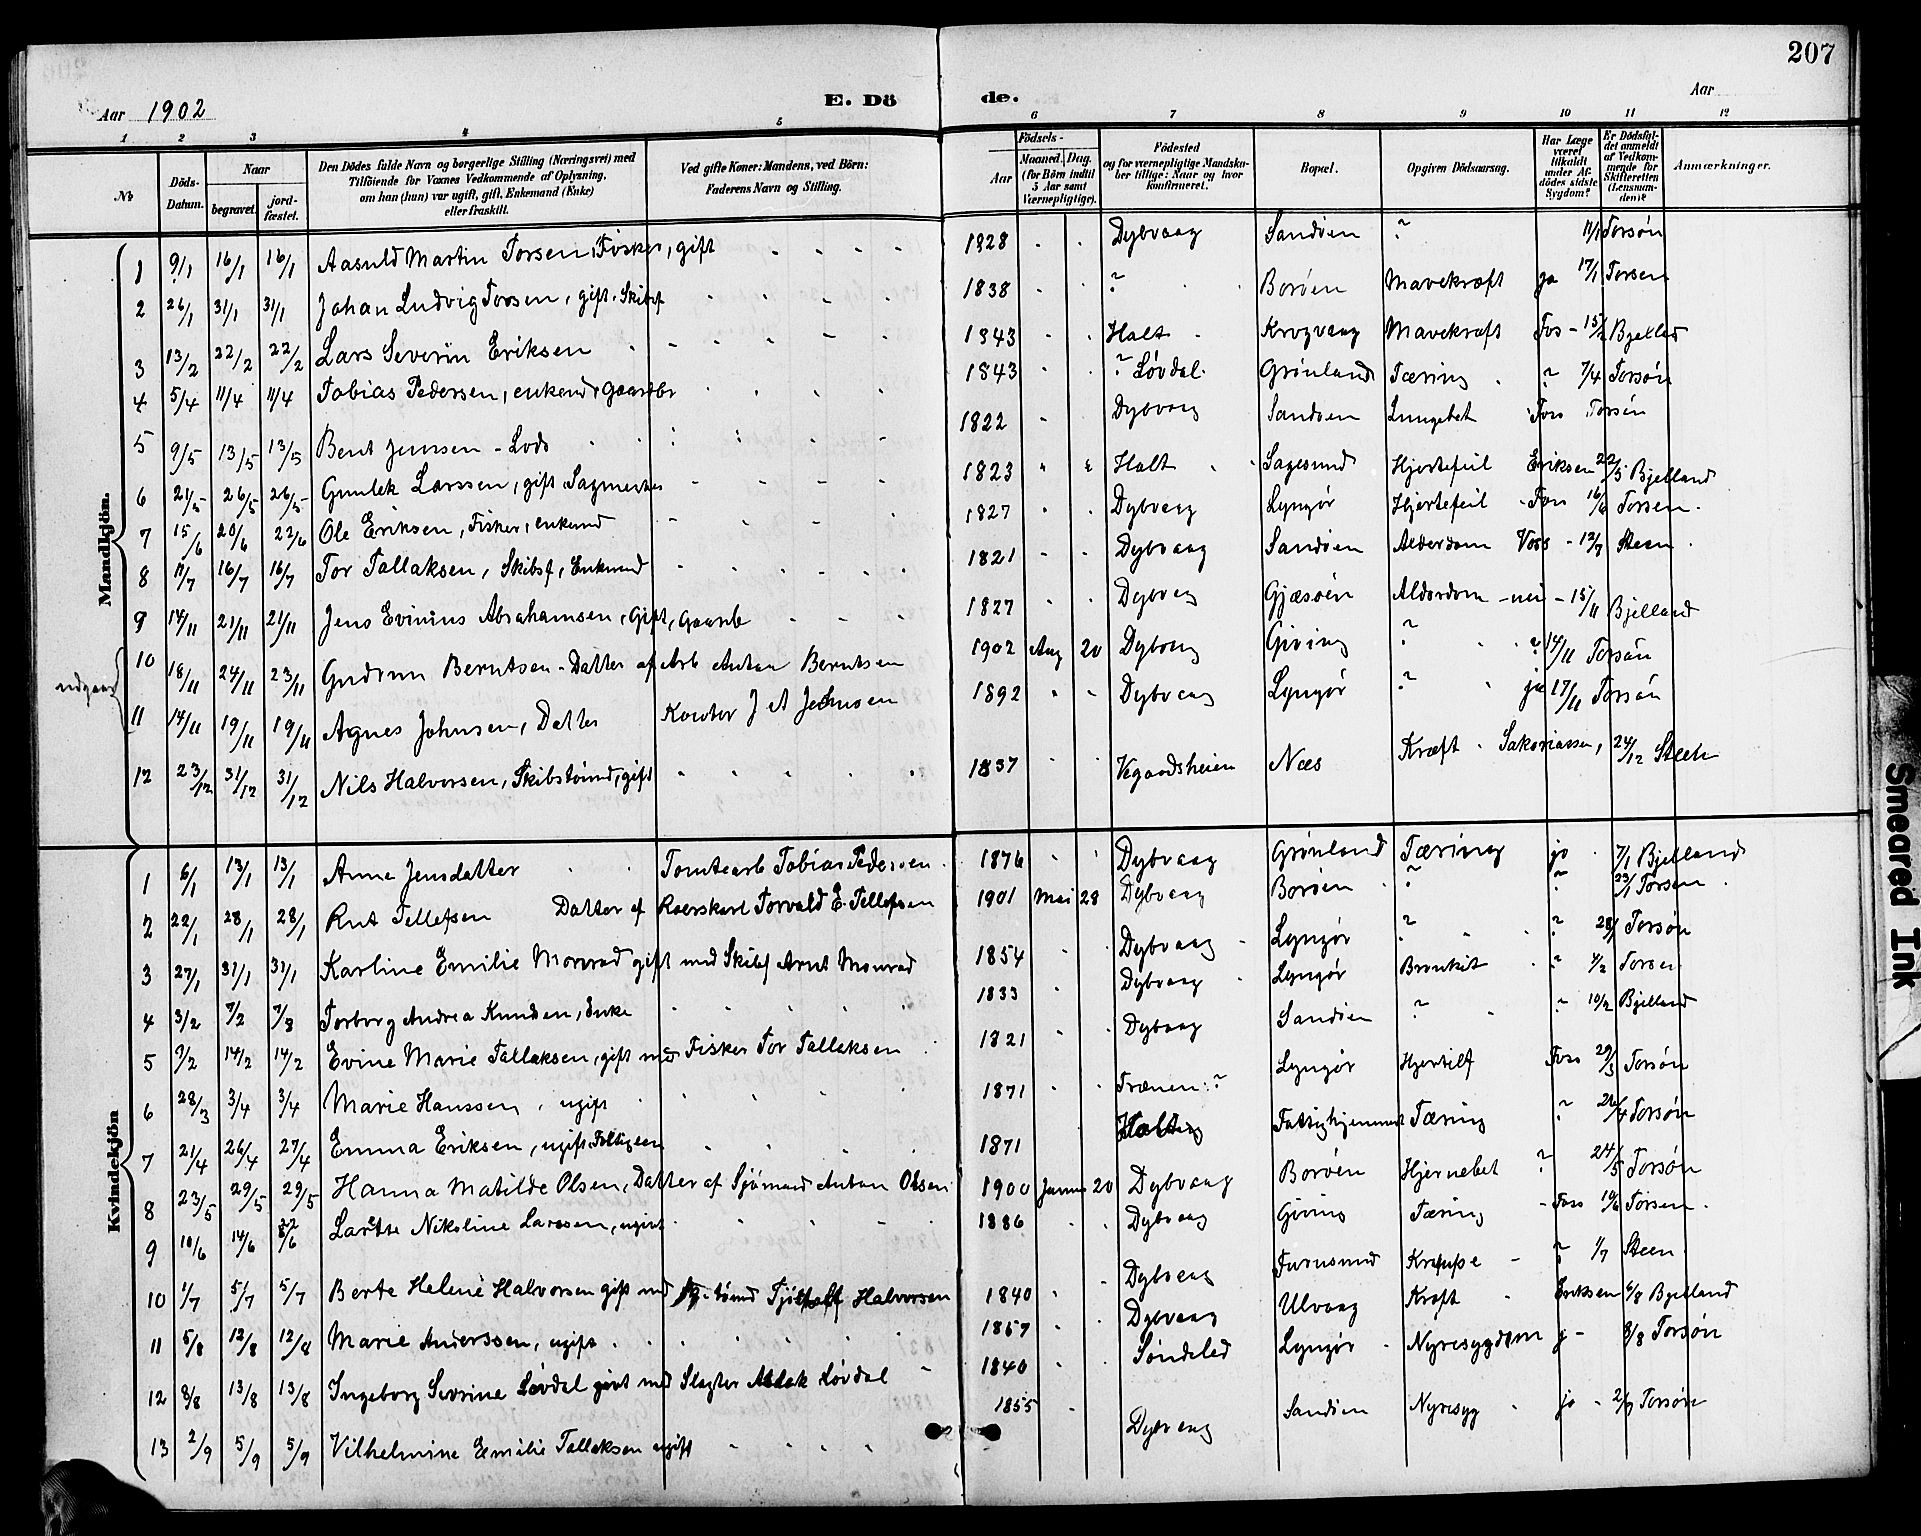 207
Aar 1902
E. Dö de.
Aar
1 2 3 4 5 6 7 8 9 10 11 12
№ Döds-Datum. Naar begravet. jord-fæstet. Den Dödes fulde Navn og borgerlige Stilling (Næringsvei) med Tilföiende for Voxnes Vedkommende af Oplysning, om han (hun) var ugift, gift, Enkemand (Enke) eller fraskilt. Ved gifte Koner: Mandens, ved Börn: Faderens Navn og Stilling. Födsels- Aar Maaned. Dag. (for Börn indtil 5 Aar samt Værnepligtige). Födested og for værnepligtige Mandskaber tillige: Naar og hvor konfirmeret. Bopæl. Opgiven Dödsaarsag. Har Læge været tilkaldt under Afdödes sidste Sygdom? Er Dödsfaldet anmeldt af Vedkommende for Skifteretten (Lensmanden)? Anmærkninger.
Mandkjön.
1 9/1 16/1 16/1 Aasuld Martin Torsen, Fisker, gift 1828 Dybvaag Sandöen ? 11/1 Torsön
2 26/1 31/1 31/1 Johan Ludvig Torsen, gift. Skibsf 1838 ? Boröen Mavekræft ja 17/1 Torsen
3 13/2 22/2 22/2 Lars Severin Eriksen 1843 Holt Krogvaag Mavekræft Fos - 15/2 Bjelled
4 5/4 11/4 11/4 Tobias Pedersen, enkemd, gaardbr 1843 ? Lövdal Grönland Tæring ? 7/4 Torsön
5 9/5 13/5 13/5 Bent Jensen - Lods 1822 Dybvaag Sandöen Lungebet Foss Torsön
6 21/5 26/5 26/5 Gunlek Larssen, gift Sagmester 1823 Holt Sagesund Hjertefeil Eriksen 22/5 Bjelland
7 15/6 20/6 22/6 Ole Eriksen, Fisker, enkemd 1827 Dybvaag Lyngör Hjertefeil Foss 16/6 Torsen
8 11/7 16/7 16/7 Tor Tallaksen, Skibsf, Enkemd 1821 Dybvaag Sandöen Alderdom Voss - 12/7 Steen
9 14/11 21/11 21/11 Jens Evinius Abrahamsen, Gift, Gaardb 1827 Dybvaag Gjæsöen Alderdom - nei - 15/11 Bjelland
udgaar
10 18/11 24/11 23/11 Gudrun Berntsen - Datter af Arb Anton Berntsen 1902 Aug 20 Dybvaag Giving ? ? 14/11 Torsön
11 14/11 19/11 19/11 Agnes Johnsen, Datter Johnsen 1892 Dybvaag Lyngör ? ja 17/11 Torsön
12 23/12 31/12 31/12 Nils Halvorsen, Skibstömmd, gift 1837 Vegaardsheien Næs Kræft Sakariassen, 24/12 Steen
Kvindekjön
1 6/1 13/1 13/1 Anne Jensdatter Tomtearb Tobias Pedersen 1876 Dybvaag Grönland Tæring ja 7/1 Bjelland
2 22/1 28/1 28/1 Rut Tellefsen Datter af Roerskarl Torvald E. Tellefsen 1901 Mai 28 Dybvaag Boröen ? ? 23/1 Torsen
3 27/1 31/1 31/1 Karline Emilie Monrad gift med Skibsf Arnt Monrad 1854 Dybvaag Lyngör ? ? 28/1 Torsön
4 3/2 7/2 7/8 Torborg Andrea Knudsen, Enke 1833 Dybvaag Lyngör Bronkit ? 4/2 Torsen
5 9/2 14/2 14/2 Evine Marie Tallaksen, gift med Fisker Tor Tallaksen 1821 Dybvaag Sandöen ? ? 10/2 Bjelland
6 28/3 3/4 3/4 Marie Hanssen, ugift 1871 Trænen ? Lyngör Hjertilf Foss 29/3 Torsön
7 21/4 26/4 27/4 Emma Eriksen, ugift Fattiglem 1871 Holt Fattighjemmet Tæring ? 26/4 Torsön
8 23/5 29/5 29/5 Hanna Matilde Olsen, Datter af Sjömand Anton Olsen 1900 Januar 20 Dybvaag Boröen Hjernebet ? 24/5 Torsön
9 10/6 14/6 22/6 Larette Nikoline Larssen, ugift 1886 Dybvaag Giving Tæring Foss 10/6 Torsen
10 1/7 5/7 5/7 Berte Helene Halvorsen gift med Halvorsen 1840 Dybvaag Furusund Krampe ? 1/7 Steen
11 5/8 12/8 12/8 Marie Anderssen, ugift 1857 Dybvaag Ulvaag Kræft Eriksen 6/8 Bjelland
12 8/8 13/8 13/8 Ingeborg Sevrine Lövdal givt med Slagter Aslak Lövdal 1840 Söndeled Lyngör Nyresygdom j - 8/8 Torsön
13 2/9 5/9 5/9 Vilhelmine Emilie Tallaksen ugift 1855 Dybvaag Sandöen Nyresyg ja 2/9 Torsön
Smeared Ink